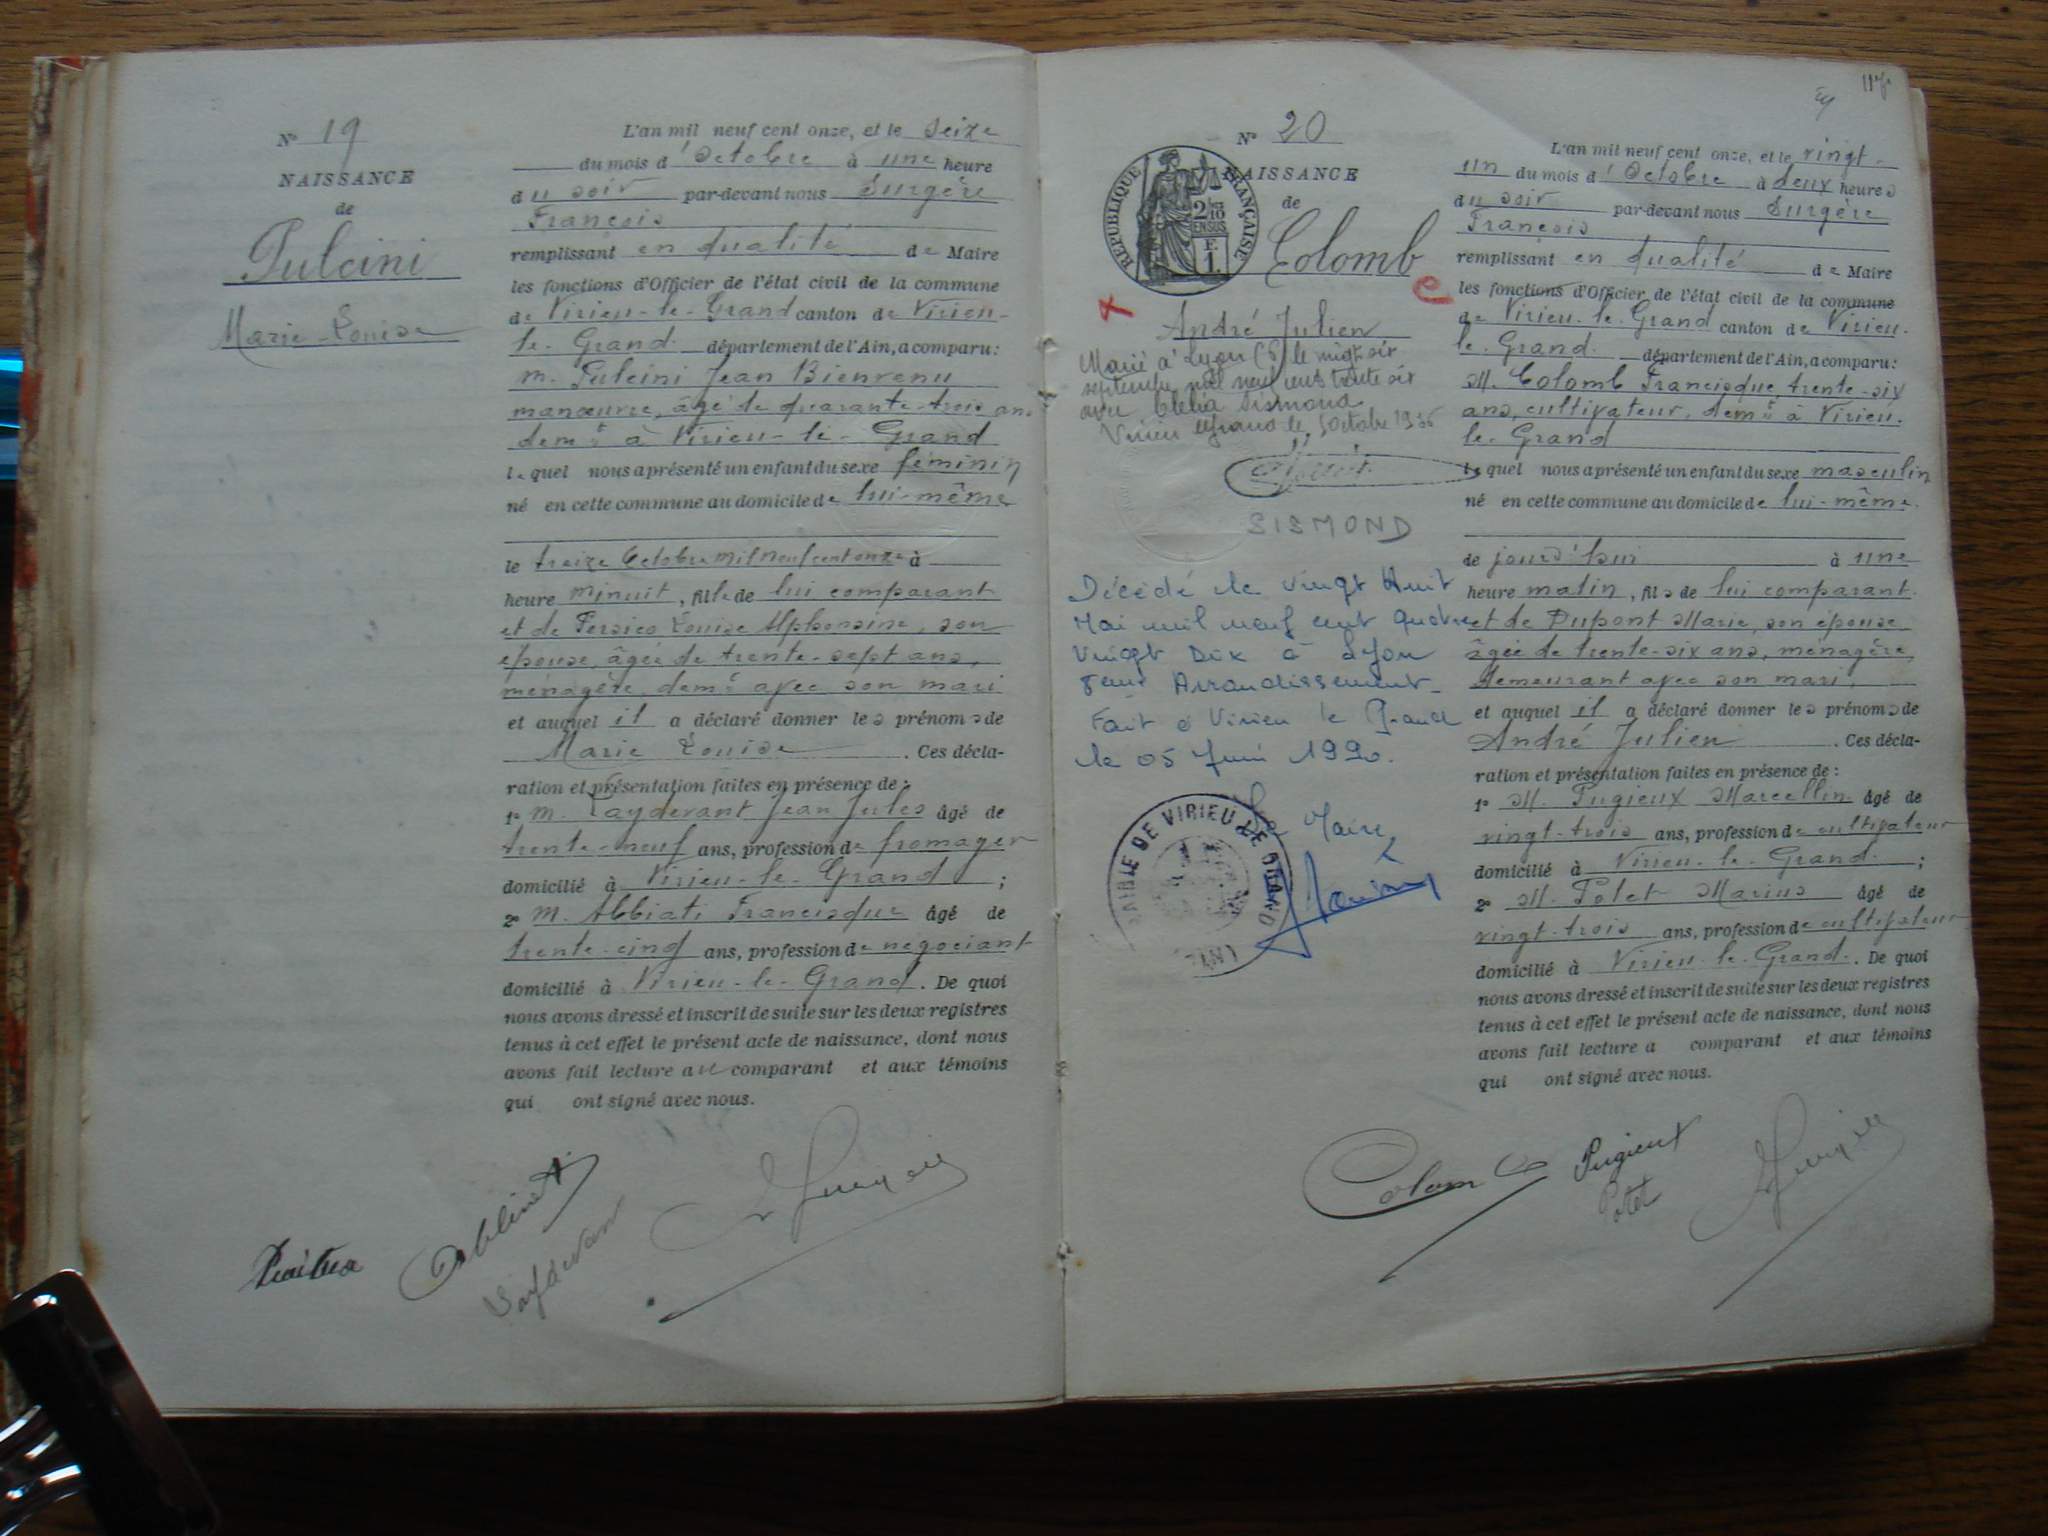 N° 19
NAISSANCE
de
Pulcini
Marie-Louise
L'an mil neuf cent onze, et le Seize
du mois d'Octobre à une heure
du soir par-devant nous Surgère
François
remplissant en qualité de Maire
les fonctions d'Officier de l'état civil de la commune
de Virieu-le-Grand canton de Virieu-
le-Grand département de l'Ain, a comparu:
M. Pulcini Jean Bienvenu
manœuvre, âgé de quarante-trois ans
demt à Virieu-le-Grand
lequel nous a présenté un enfant du sexe féminin
né en cette commune au domicile de lui-même
le treize Octobre mil neuf cent onze à
heure minuit, fille de lui comparant
et de Persico Louise Alphonsine, son
épouse, âgée de trente-sept ans,
ménagère, demt avec son mari
et auquel il a déclaré donner les prénoms de
Marie Louise. Ces décla-
ration et présentation faites en présence de:
1° M. Laydevant Jean Jules âgé de
trente-neuf ans, profession de fromager
domicilié à Virieu-le-Grand;
2° M. Abbiati Francisque âgé de
trente-cinq ans, profession de négociant
domicilié à Virieu-le-Grand. De quoi
nous avons dressé et inscrit de suite sur les deux registres
tenus à cet effet le présent acte de naissance, dont nous
avons fait lecture au comparant et aux témoins
qui ont signé avec nous.
N° 20
NAISSANCE
de
RÉPUBLIQUE FRANÇAISE
2/10
EN SUS
F.
1.
Colomb
André Julien
Marié à Lyon (6) le vingt six
septembre mil neuf cent trente six
avec Clelia Sismond
Virieu le Grand le 5 octobre 1936
SISMOND
Décédé le vingt Huit
Mai mil neuf cent quatre
vingt Dix à Lyon
8eme Arrondissement.
Fait à Virieu le Grand
le 05 Juin 1990.
Le Maire,
MAIRIE DE VIRIEU LE GRAND
(AIN)
L'an mil neuf cent onze, et le vingt-
un du mois d'Octobre à deux heures
du soir par-devant nous Surgère
François
remplissant en qualité de Maire
les fonctions d'Officier de l'état civil de la commune
de Virieu-le-Grand canton de Virieu-
le-Grand département de l'Ain, a comparu:
M. Colomb Francisque, trente-six
ans, cultivateur, demt à Virieu-
le-Grand
lequel nous a présenté un enfant du sexe masculin
né en cette commune au domicile de lui-même
de jourd'hui à une
heure matin, fils de lui comparant
et de Dupont Marie, son épouse
âgée de trente-six ans, ménagère,
demeurant avec son mari,
et auquel il a déclaré donner les prénoms de
André Julien. Ces décla-
ration et présentation faites en présence de:
1° M. Pugieux Marcellin âgé de
vingt-trois ans, profession de cultivateur
domicilié à Virieu-le-Grand;
2° M. Potet Marius âgé de
vingt-trois ans, profession de cultivateur
domicilié à Virieu-le-Grand. De quoi
nous avons dressé et inscrit de suite sur les deux registres
tenus à cet effet le présent acte de naissance, dont nous
avons fait lecture a comparant et aux témoins
qui ont signé avec nous.
Colomb Pugieux
Potet